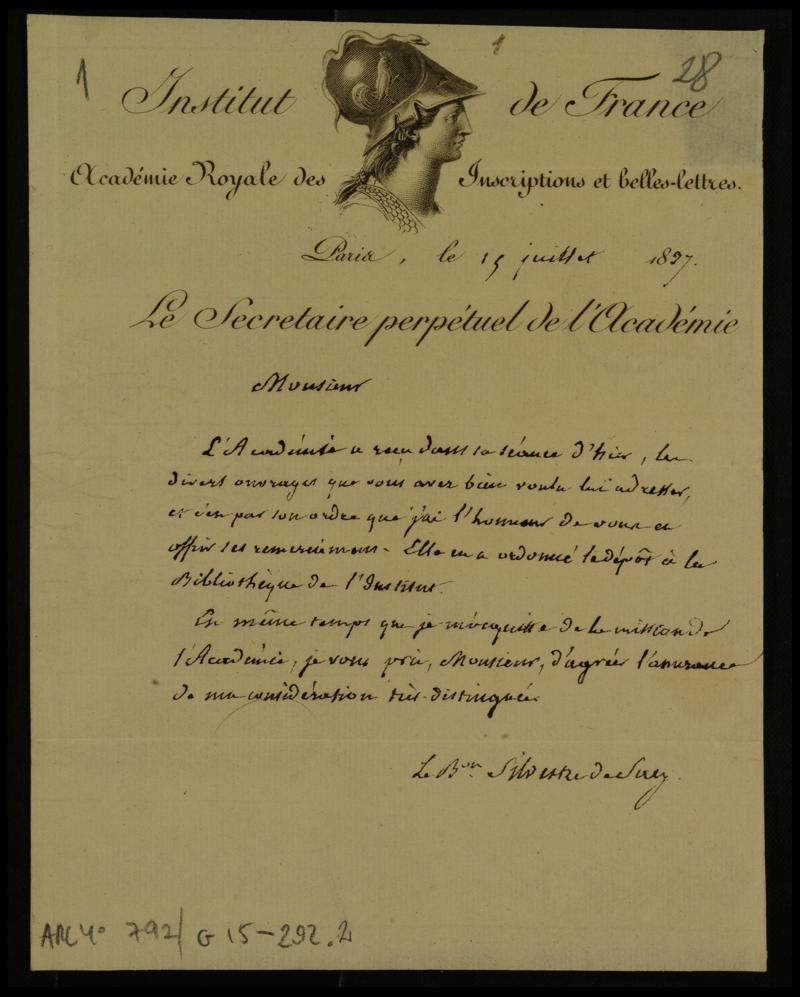 1
1
28
Institut de France
Académie Royale des Inscriptions et belles-lettres.
Paris, le 15 juillet 1837.
Le Secretaire perpétuel de l'Académie
Monsieur
L'Académie a reçu dans sa séance d'hier, les
divers ouvrages que vous avez bien voulu lui adresser,
et c'est par son ordre que j'ai l'honneur de vous en
offrir ses remerciemens. Elle en a ordonné le dépôt à la
Bibliothèque de l'Institut.
En même temps que je m'acquitte de la mission de
l'Académie, je vous prie, Monsieur, d'agréer l'assurance
de ma considération très-distinguée.
Le Bon. Silvestre de Sacy.
ARC 4° 792/ G 15-292.2